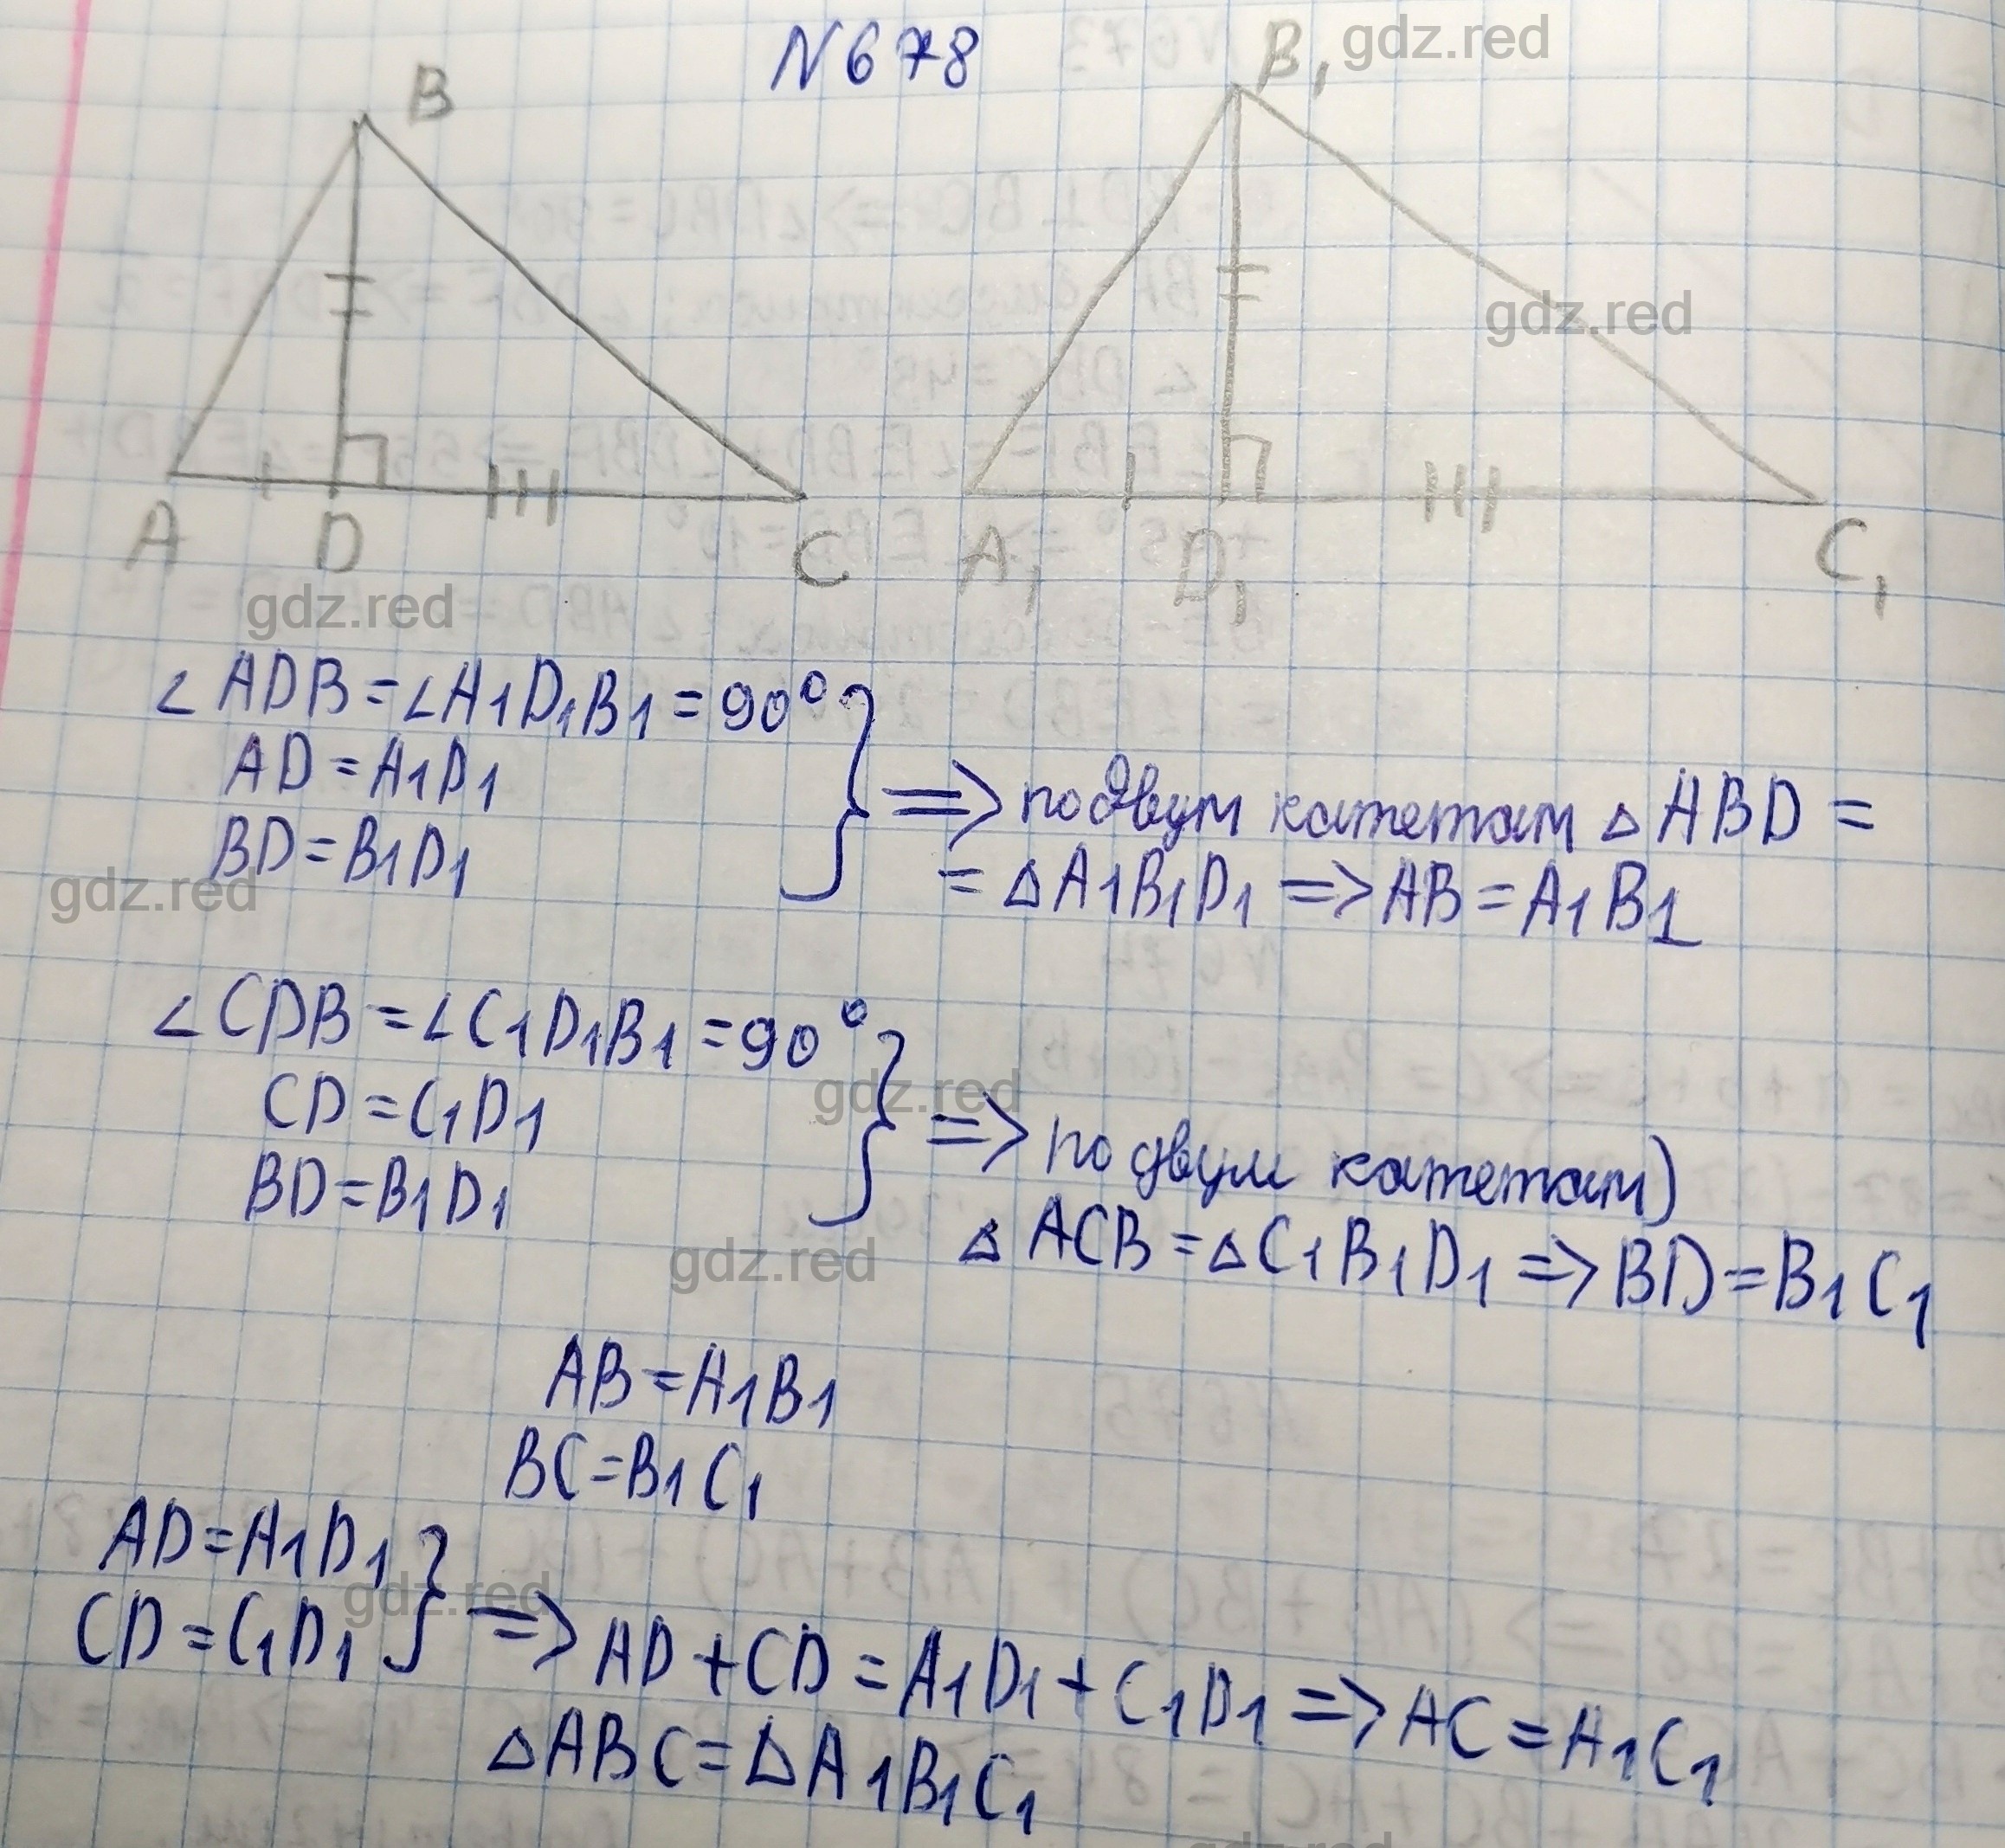 N 678
gdz.red
B
B₁
gdz.red
A
D
C
A₁
D₁
C₁
gdz.red
∠ADB = ∠A₁D₁B₁ = 90°
AD = A₁D₁
BD = B₁D₁
gdz.red
=> по двум катетам △ABD =
= △A₁B₁D₁ => AB = A₁B₁
∠CDB = ∠C₁D₁B₁ = 90°
gdz.red
CD = C₁D₁
BD = B₁D₁
=> по двум катетам)
gdz.red
△ACB = △C₁B₁D₁ => BD = B₁C₁
AB = A₁B₁
BC = B₁C₁
AD = A₁D₁
gdz.red
CD = C₁D₁
=> AD + CD = A₁D₁ + C₁D₁ => AC = A₁C₁
△ABC = △A₁B₁C₁
gdz.red